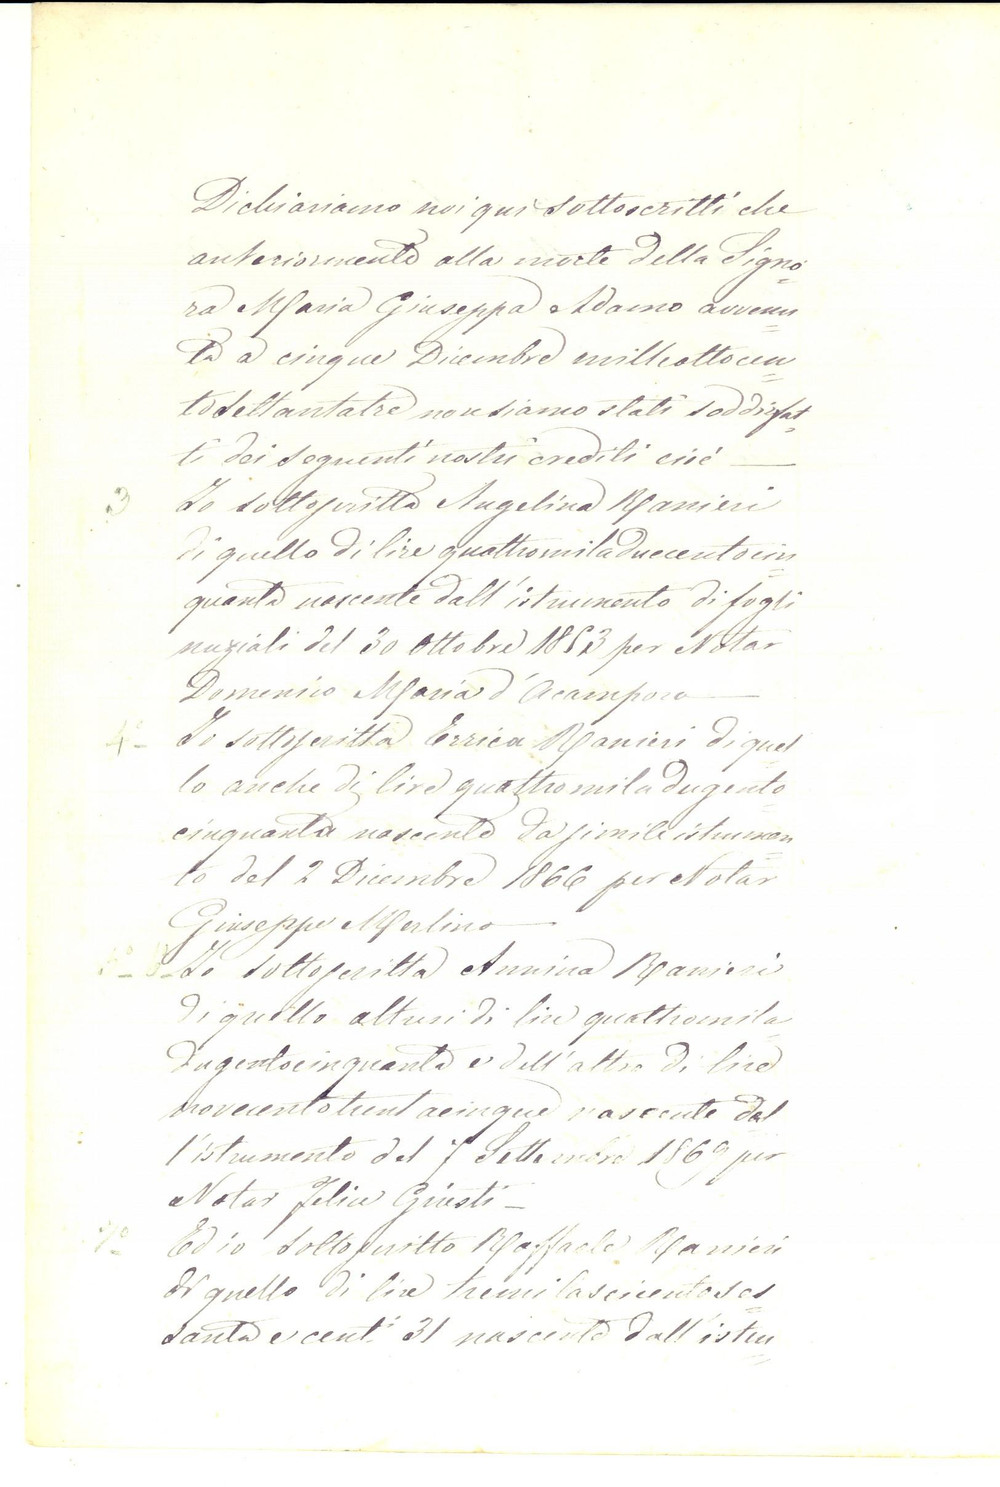 Dichiariamo noi qui sottoscritti che
anteriormente alla morte della Signo=
ra Maria Giuseppa Adamo avvenu=
ta a cinque Dicembre milleottocen=
tosettantatre non siamo stati soddisfat=
ti dei seguenti nostri crediti cioè —
3 Io sottoscritta Angelina Ranieri
di quello di lire quattromiladuecentocin=
quanta nascente dall'istrumento di fogli
nuziali del 30 Ottobre 1853 per Notar
Domenico Maria d'Acampora —
4° Io sottoscritta Errica Ranieri di quel=
lo anche di lire quattromiladugento=
cinquanta nascente da simile istrumen=
to del 2 Dicembre 1866 per Notar
Giuseppe Merlino —
Io sottoscritta Annina Ranieri
di quello altresi di lire quattromila=
dugentocinquanta e dell'altro di lire
novecentotrentacinque nascente dal=
l'istrumento del 7 Settembre 1869 per
Notar Felice Giusti —
7° Ed io sottoscritto Raffaele Ranieri
di quello di lire tremilaseicentoses=
santa e cent.i 31 nascente dall'istru=